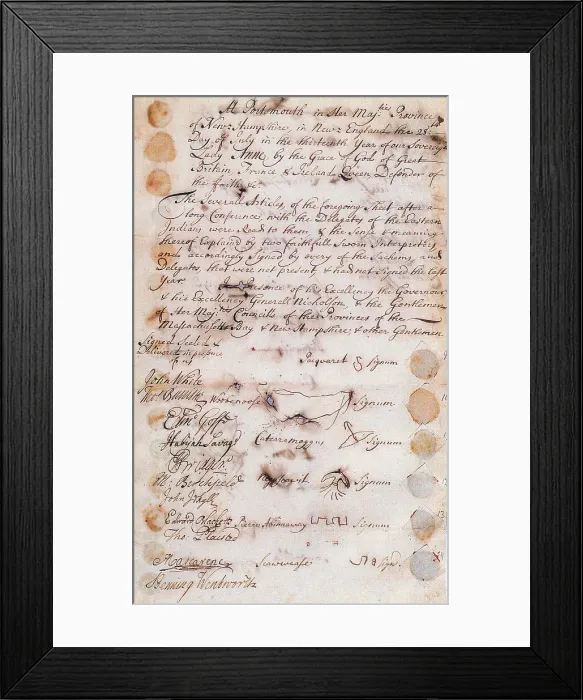 At Portsmouth in Her Maj:ties Province
of New Hampshire, in New England the 28:th
Day of July in the thirteenth Year of our Sovereign
Lady ANNE by the Grace of God of Great
Britain France & Ireland Queen, Defender of
the faith &c
The Severall Articles, of the foregoing Sheet after a
long Conference, with the Delegates of the Eastern
Indians were Read to them, & the Sense & meaning
thereof Explained by two faithfull Sworn Interpreters
and accordingly Signed by every of the Sachems, and
Delegates that were not present, & had not Signed the last
Year
In presence of his Excellency the Governour
& his Excellency Generall Nicholson, & the Gentlemen
of Her Maj:ties Councills of the Provinces of the
Massachusetts Bay & New Hampshire & other Gentlemen
Signed Sealed &
Delivered in presence
of us
Jacquaret Signum
John White
Wooenoose Signum
Elm: Goffe
Habijah Savage Caterramoggus Signum
Signum
John Jekyll
Edward Pierre Signum
Tho: Plaisted
Scawwease Sign:
Benning Wentworth